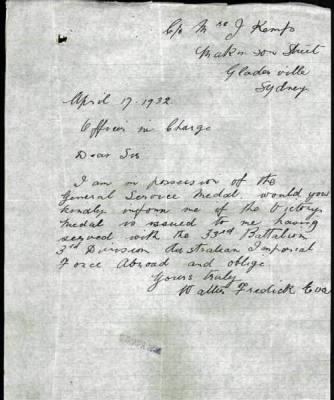 C/o Mrs J Kemp
Makinson Street
Gladesville
Sydney
April 17. 1932
Officer in Charge
Dear Sir
I am in possession of the
General Service Medal, would you
kindly inform me if the Victory
Medal is issued to me having
served with the 33rd Battalion
3rd Division Australian Imperial
Force Abroad and oblige
Yours truly
Walter Fredick Eva